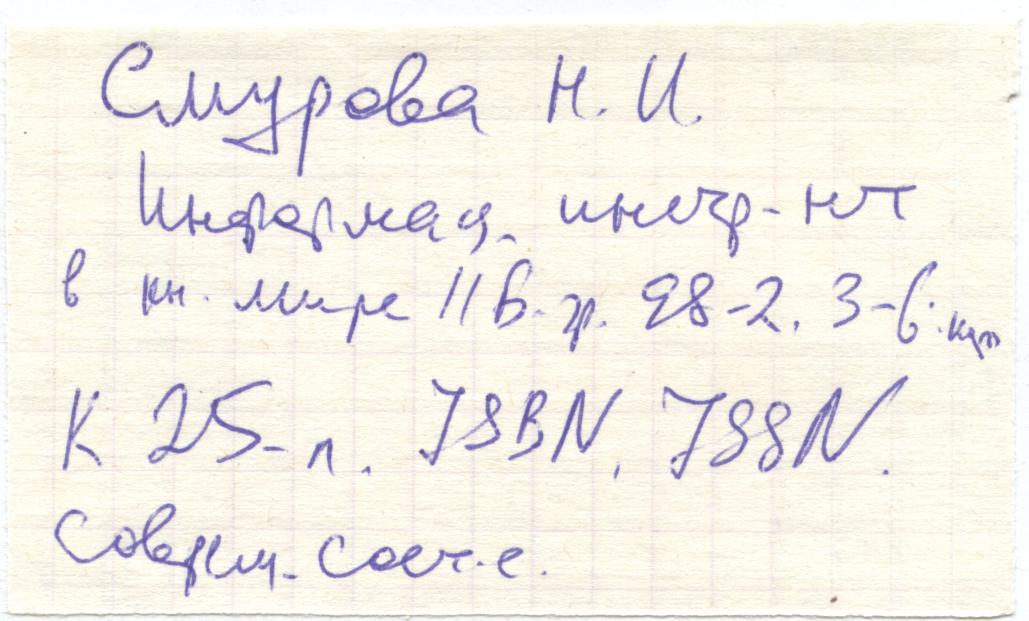 Смурова Н. И.
Информац. инстр-нт
в кн. мире // Б-гр. 98-2. 3-6.
К 25-л. ISBN, ISSN.
соврем. сост-е.